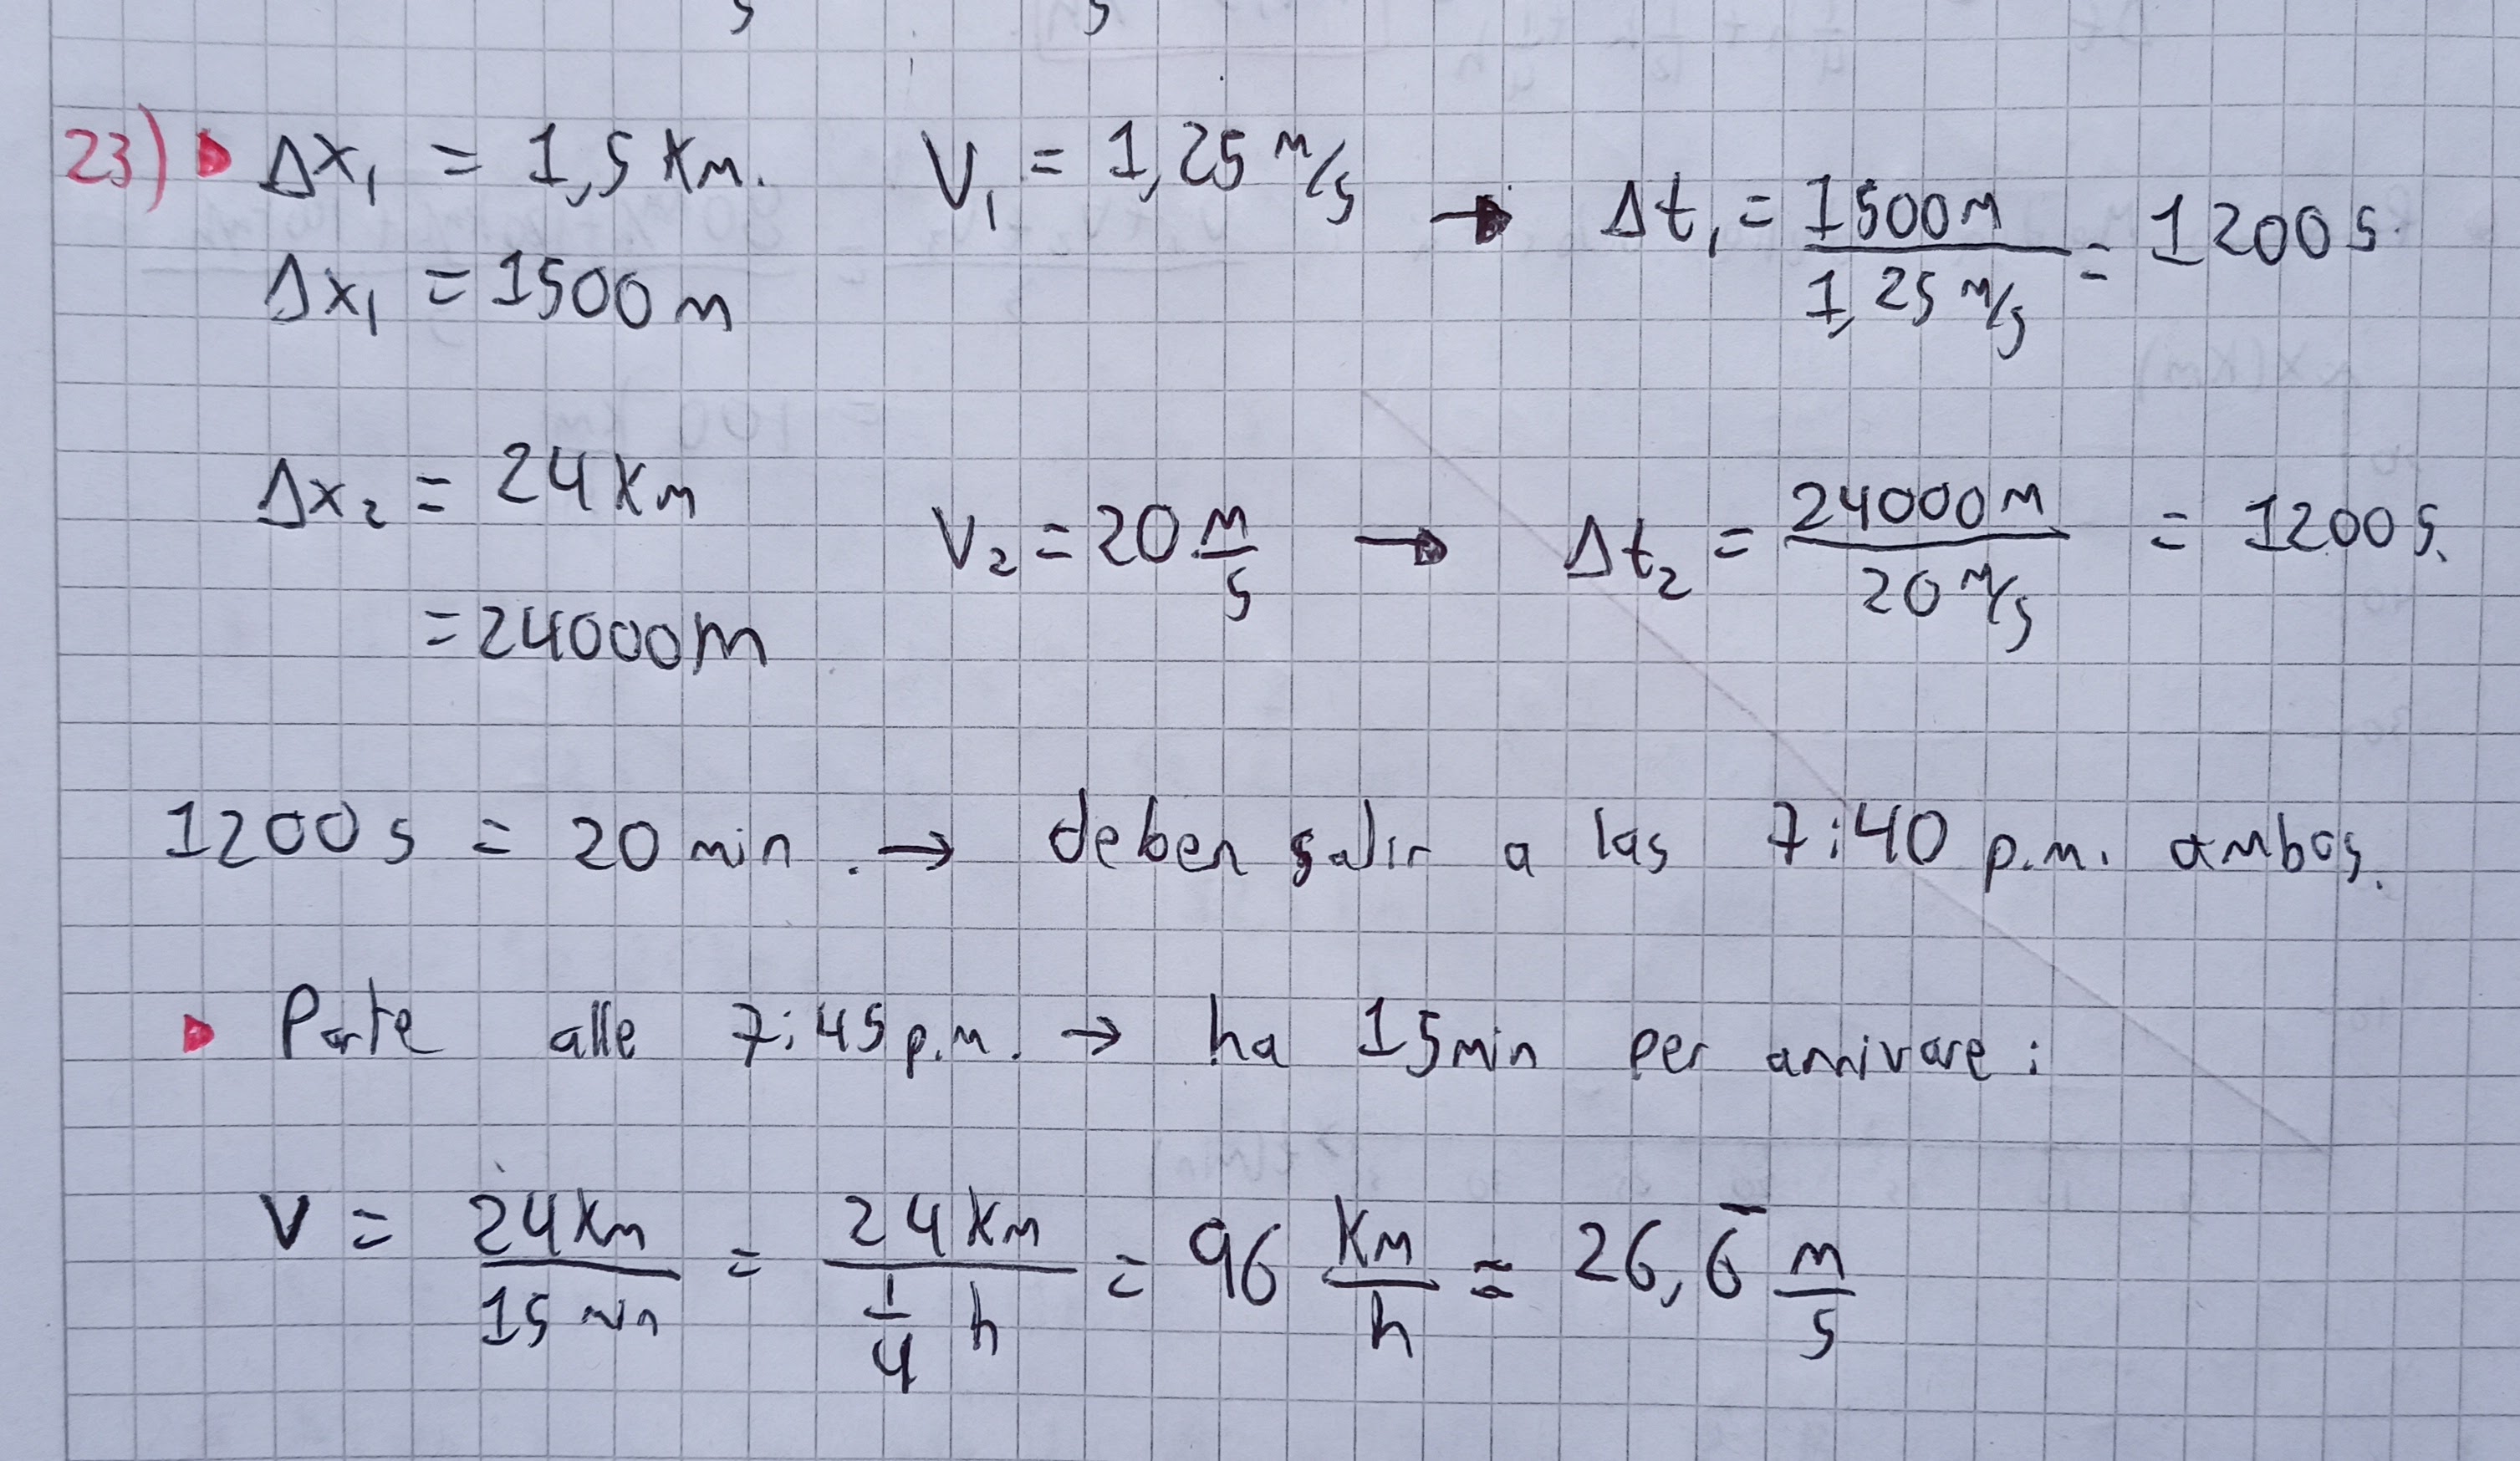 23) Δx₁ = 1,5 Km. V₁ = 1,25 m/s → Δt₁ = 1500m / 1,25 m/s = 1200 s.
Δx₁ = 1500 m
Δx₂ = 24 Km V₂ = 20 m/s → Δt₂ = 24000m / 20 m/s = 1200 s.
= 24000m
1200 s = 20 min. → deben salir a las 7:40 p.m. ambos.
Parte alle 7:45 p.m. → ha 15 min per arrivare:
V = 24 Km / 15 min = 24 Km / 1/4 h = 96 Km/h = 26,6̅ m/s